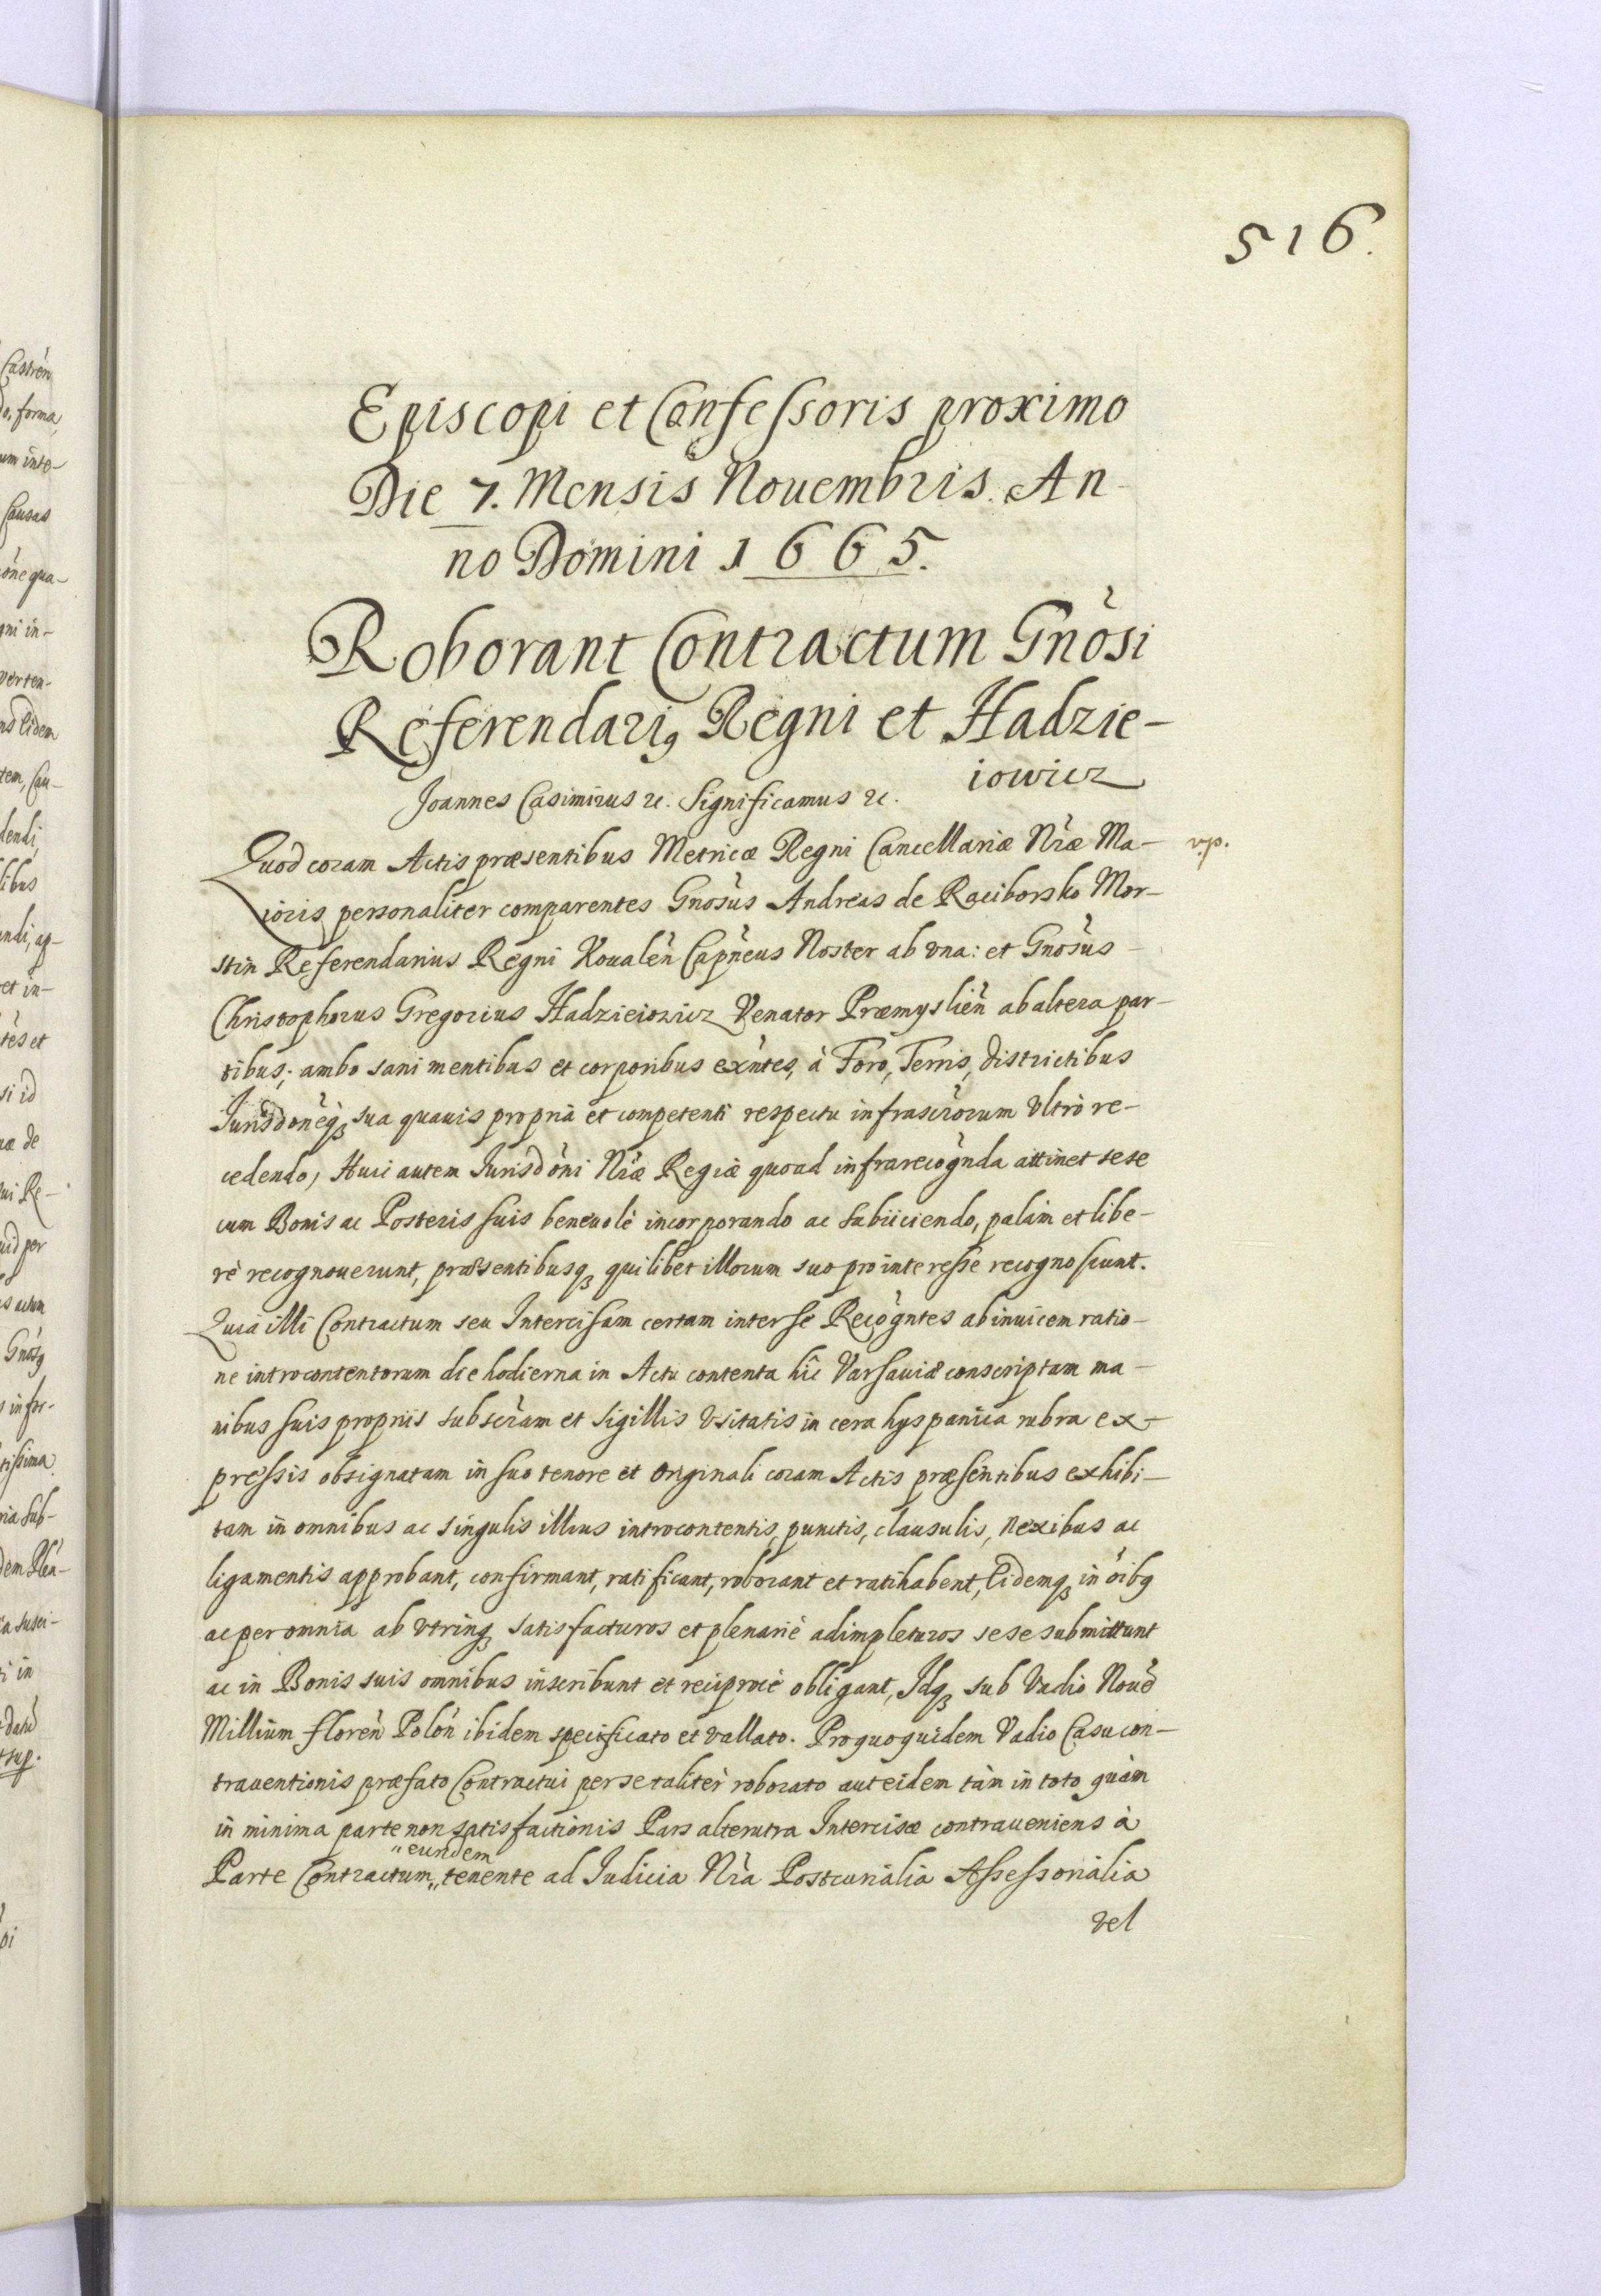 516.
Episcopi et Confessoris proximo
Die 7. Mensis Nouembris. An-
no Domini 1665.
Roborant Contractum Gnosi
Referendariq Regni et Hadzie-
iowicz
Joannes Casimirus &c. Significamus &c.
Quod coram Actis præsentibus Metricæ Regni Cancellariæ Nræ Ma- v.p.
ioris personaliter comparentes Gnosus Andreas de Raciborsko Mor-
stin Referendarius Regni Koualen Capneus Noster ab vna: et Gnosus
Christophorus Gregorius Hadzieiowicz Venator Præmyslien ab altera par-
tibus; ambo sani mentibus et corporibus exntes, à Foro, Terris, Districtibus
Jurisdoneq3 sua quauis propriâ et competenti respectu infrascrorum vltrò re-
cedendo, Huic autem Jurisdoni Nræ Regiæ quoad infrarecognda attinet sese
cum Bonis ac Posteris suis beneuolè incorporando ac subiiciendo, palàm et libe-
rè recognouerunt, præsentibusq3 quilibet illorum suo pro interesse recognoscunt.
Quia illi Contractum seu Intercisam certam inter se Recogntes ab inuicem ratio-
ne introcontentorum die hodierna in Actu contenta hîc Varsauiæ conscriptam ma-
nibus suis propriis subscram et sigillis vsitatis in cera hyspanica rubra ex-
pressis obsignatam in suo tenore et originali coram Actis præsentibus exhibi-
tam in omnibus ac singulis illius introcontentis, punctis, clausulis, nexibus ac
ligamentis approbant, confirmant, ratificant, roborant et ratihabent, Eidemq3 in oibq
ac per omnia ab vtrinq3 satisfacturos et plenariè adimpleturos sese submittunt
ac in Bonis suis omnibus inscribunt et reciprocè obligant, Idq3 sub Vadio Noue
Millium floren Polon ibidem specificato et vallato. Pro quo quidem Vadio Casu con-
trauentionis præfato Contractui per se taliter roborato aut eidem tàm in toto quàm
in minima parte non satisfactionis Pars alterutra Intercisæ contraueniens à
„eundem
Parte Contractum „ tenente ad Judicia Nra Postcurialia Assessorialia
vel